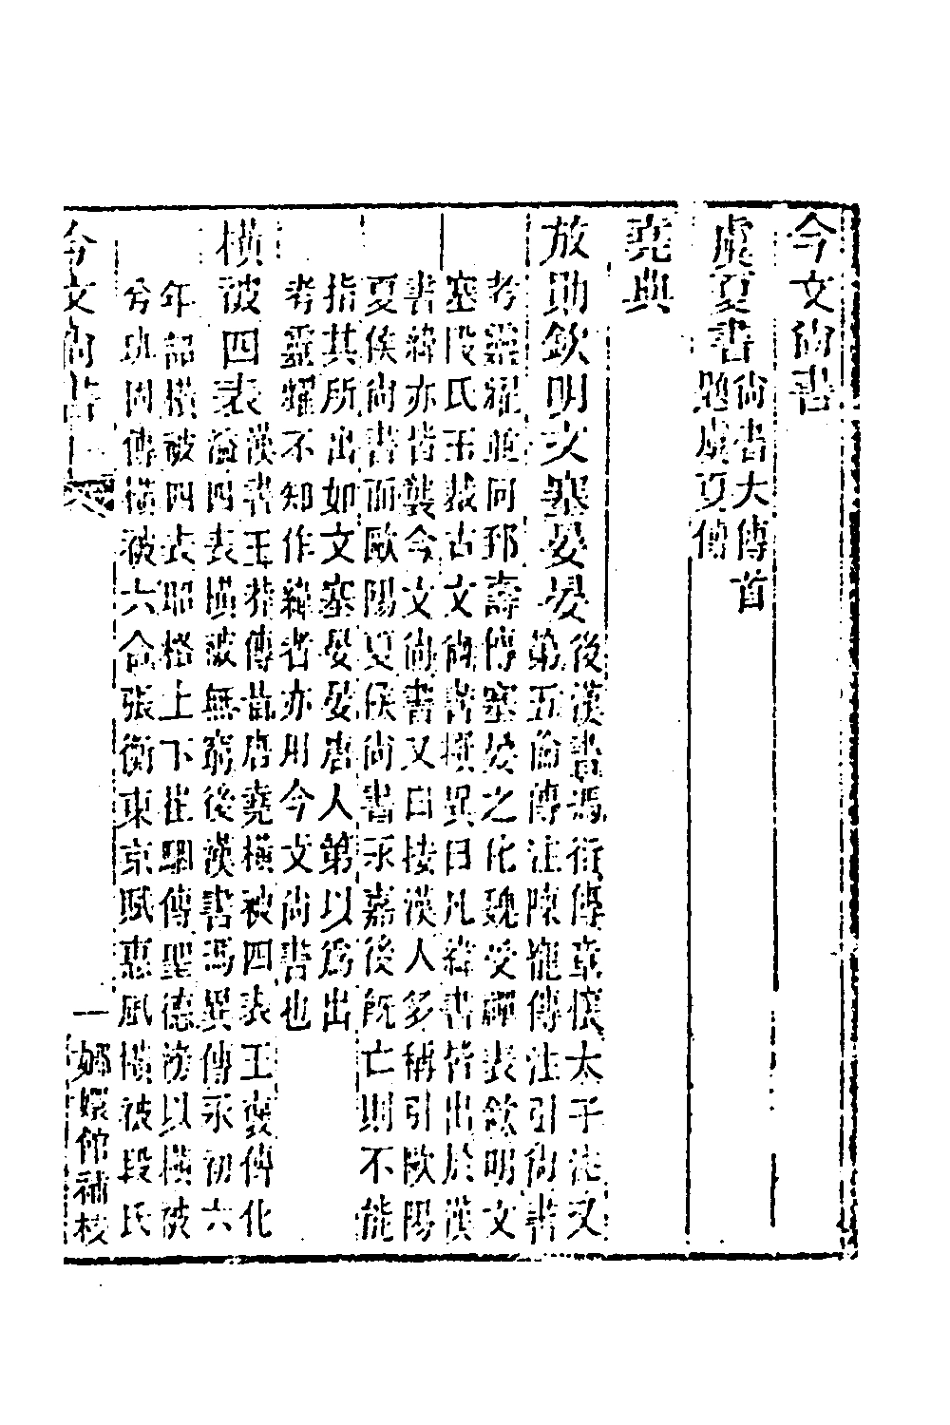 今文尚書
虞夏書尚書大傳首
題虞夏傳
堯典
放勛欽明文塞晏晏後漢書馮衍傳章懷太子注又
第五倫傳注陳寵傳注引尚書
考靈耀並同邳壽傳塞晏之化魏受禪表欽明文
塞段氏玉裁古文尚書撰異曰凡緯書皆出於漢
書緯亦皆襲今文尚書又曰接漢人多稱引歐陽
夏侯尚書而歐陽夏侯尚書永嘉後既亡則不能
指其所出如文塞晏晏唐人第以爲出
考靈耀不知作緯者亦用今文尚書也
橫被四表漢書王莽傳昔唐堯橫被四表王襃傳化
溢四表橫被無窮後漢書馮異傳永初六
年詔橫被四表昭格上下崔駰傳聖德滂以橫被
兮班固傳橫被六合張衡東京賦惠風橫被段氏
今文尚書
一 嫏嬛館補校